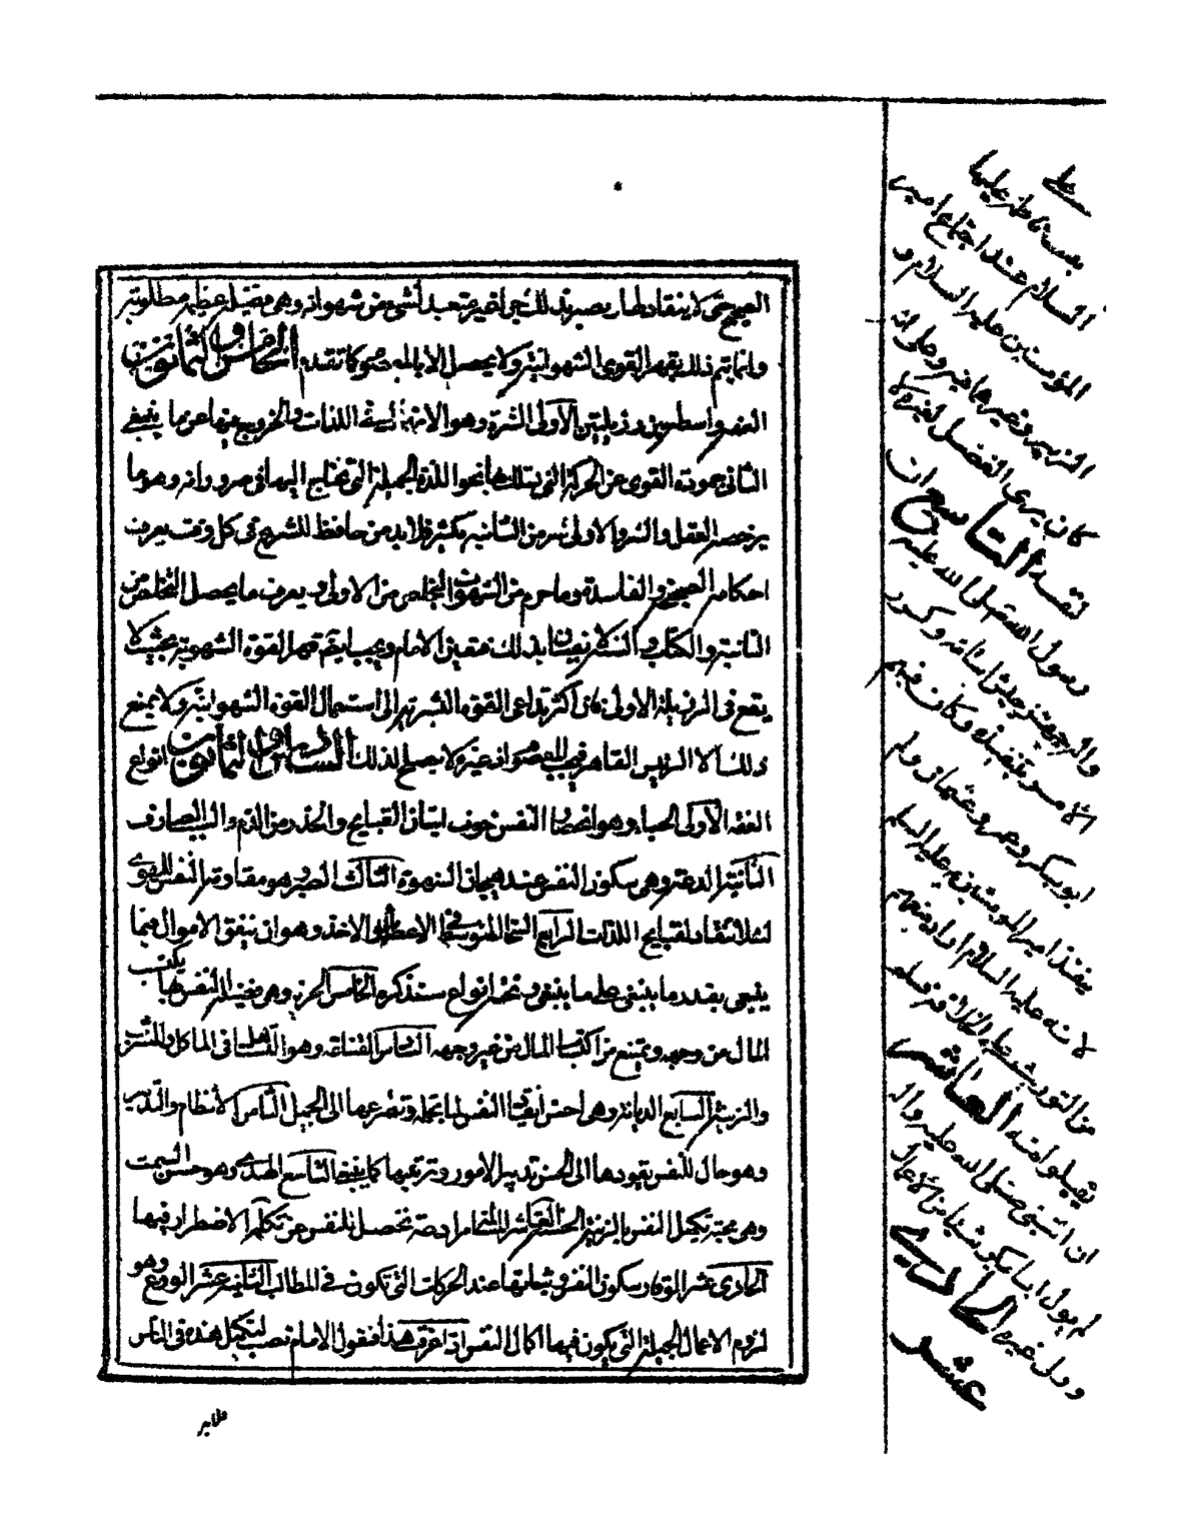 الصحيح حتى لا ينقاد لها ويصير بذلك حرا غير متعبد لشيء من شهواته وهي فضيلة عظيمة مطلوبة
وانما يتم ذلك بقهر القوى الشهوانية ولا يحصل الا بالمعصوم كما تقدم الخامس والثمانون
العفة واسطة بين رذيلتين الأولى الشره وهو الانهماك في اللذات والخروج فيها عن ما ينبغي
الثاني خمود القوى عن الحركة التي يسلك بها نحو اللذة الجميلة التي تحتاج اليها في ضروراته وهو ما
يرخصه العقل والشرع والاولى شر من الثانية بكثير فلا بد من حافظ للشرع في كل وقت يعرف
احكامه الصحيحة والفاسدة وما حرم من الشهوات ليتخلص من الاولى ويعرف ما يحصل التخلص من
الثانية والكتاب والسنة لا يفيان بذلك فتعين الامام ويجب ايضا قهر القوة الشهوية بحيث لا
يقع في الرذيلة الاولى فان أكثر تداعي القوة البشرية إلى استعمال القوة الشهوانية ولا يمنع
ذلك الا الرئيس القاهر فيجب المعصوم اذ غيره لا يصلح لذلك السادس والثمانون انواع
العفة الأولى الحياء وهو انحصار النفس خوف اتيان القبايح والحذر من الذم والسب الصادق
الثانية الدعة وهي سكون النفس عند هيجان الشهوة الثالث الصبر وهو مقاومة النفس للهوى
لئلا تنقاد لقبايح اللذات الرابع السخا التوسط في الاعطاء والاخذ وهو ان ينفق الاموال فيما
ينبغي بقدر ما ينبغي على ما ينبغي وتحته انواع سنذكره الخامس الحرية وهي فضيلة للنفس بها يكتسب
المال من وجهه ويمتنع من اكتساب المال من غير وجهه السادس القناعة وهو التساهل في الماكل والمشرب
والزينة السابع الدماثة وهي احسن انقياد النفس لما يجمل وتسرعها الى الجميل الثامن الانتظام والتدبير
وهو حال للنفس يقودها الى الحسن تدبير الامور وترتيبها كما ينبغي التاسع الهدى وهو حسن السمت
وهي محبة تكميل النفس بالزينة الحسنة العاشر المسالمة موادعة تحصل للنفس عن تكلم لا اضطرار فيها
الحادي عشر الوقار وسكون النفس وثباتها عند الحركات التي تكون في المطالب الثانية عشر الورع وهو
لزوم الاعمال الجميلة التي يكون فيها اكمال النفس اذا عرفت هذا فنقول الامام نصب لتكميل هذه في الناس
على
السلام عند اجتماع امير
المؤمنين عليه السلام و
الزبير وغيرهما فيه وحلوانه
كان يرى الفضل لغيره لا
نفسه التاسع ان
رسول الله صلى الله عليه
ابو بكر وعمر وعثمان ولم
ينفذ امير المؤمنين عليه السلم
لانه عليه السلام اراد منعهم
يقبلوا منه العاشر
ان النبي صلى الله عليه واله
لم يول ابا بكر شيئا من الاعمال
وولى غيره الحادي
عشر